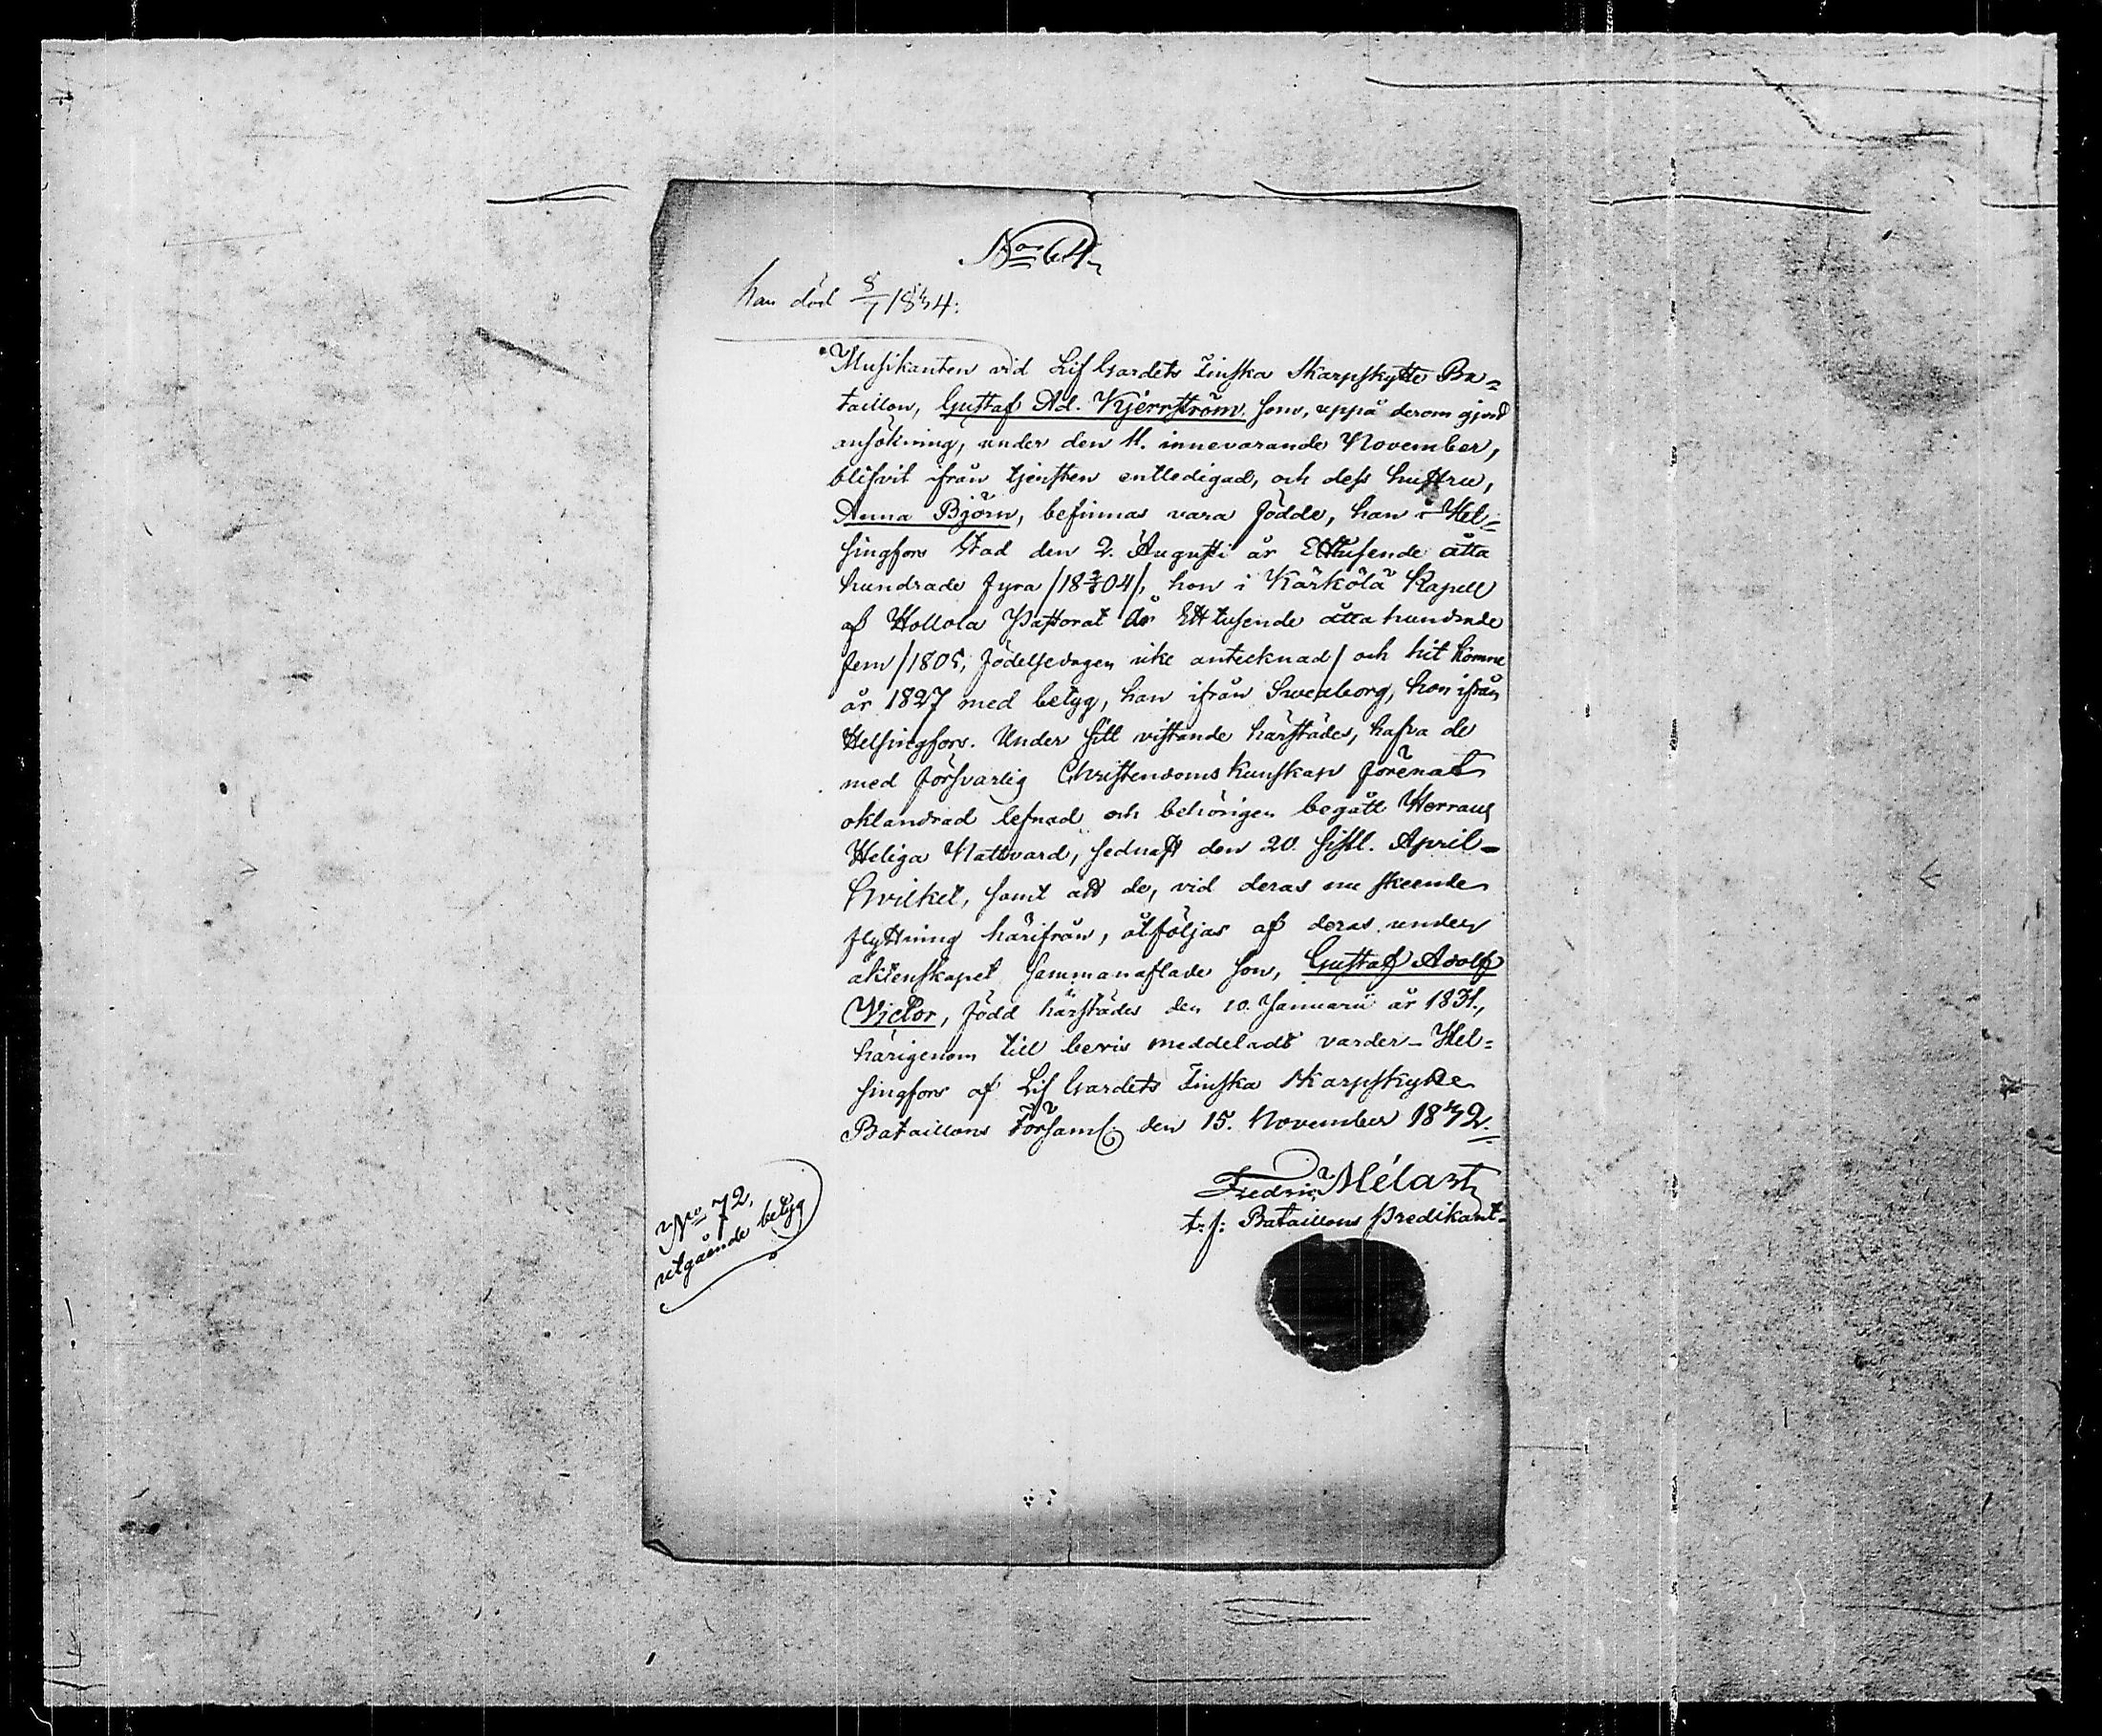 No 64.
han död 8/7 1834.
Musikanten vid Lif Gardets Finska Skarpskytte Ba=
taillon, Gustaf Ad. Kjerrström som, uppå derom gjord
ansökning, under den 11. innevarande November,
blifvit ifrån tjensten entledigad, och dess hustru,
Anna Björn, befinnas vara födde, han i Hel=
singfors Stad den 2. Augusti år Ettusende åtta
hundrade fyra /18 2/8 04/, hon i Kärkölä Kapell
af Hollola Pastorat år Ett tusende åtta hundrade
fem /1805, födelsedagen icke antecknad/ och hit komne
år 1827 med betyg, han ifrån Sweaborg, hon ifrån
Helsingfors. Under sitt vistande härstädes, hafva de
med försvarlig Christendoms kunskap förenat
oklandrad lefnad och behörigen begått Herrans
Heliga Nattvard, sednast den 20. sistl. April -
Hvilket, samt att de, vid deras nu skeende
flyttning härifrån, åtföljas af deras under
äktenskapet sammanaflade son, Gustaf Adolf
Victor, född härstädes den 10. Januarii år 1831.,
härigenom till bevis meddeladt varder - Hel=
singfors af Lif Gardets Finska Skarpskytte
Bataillons Församl. den 15. November 1832.
Fredric Mélart
t. f. Bataillons Predikant.
No 72.
utgående betyg